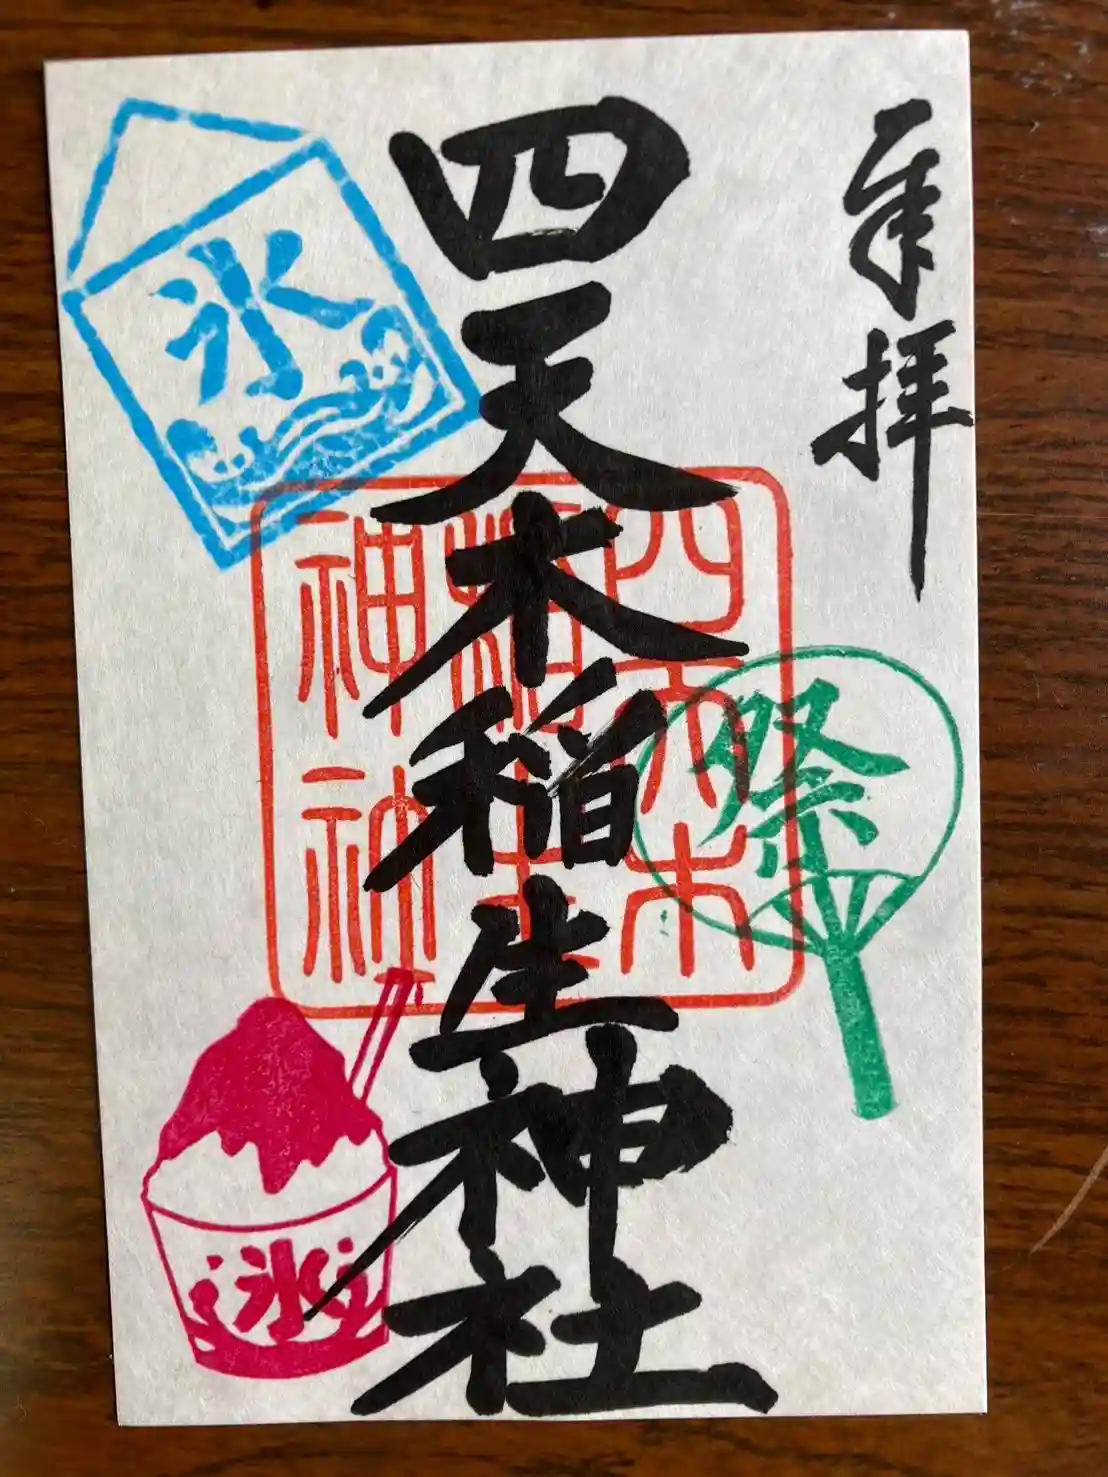 奉拝
四天木稲生神社
四天木
稲生
神社
祭
氷
氷